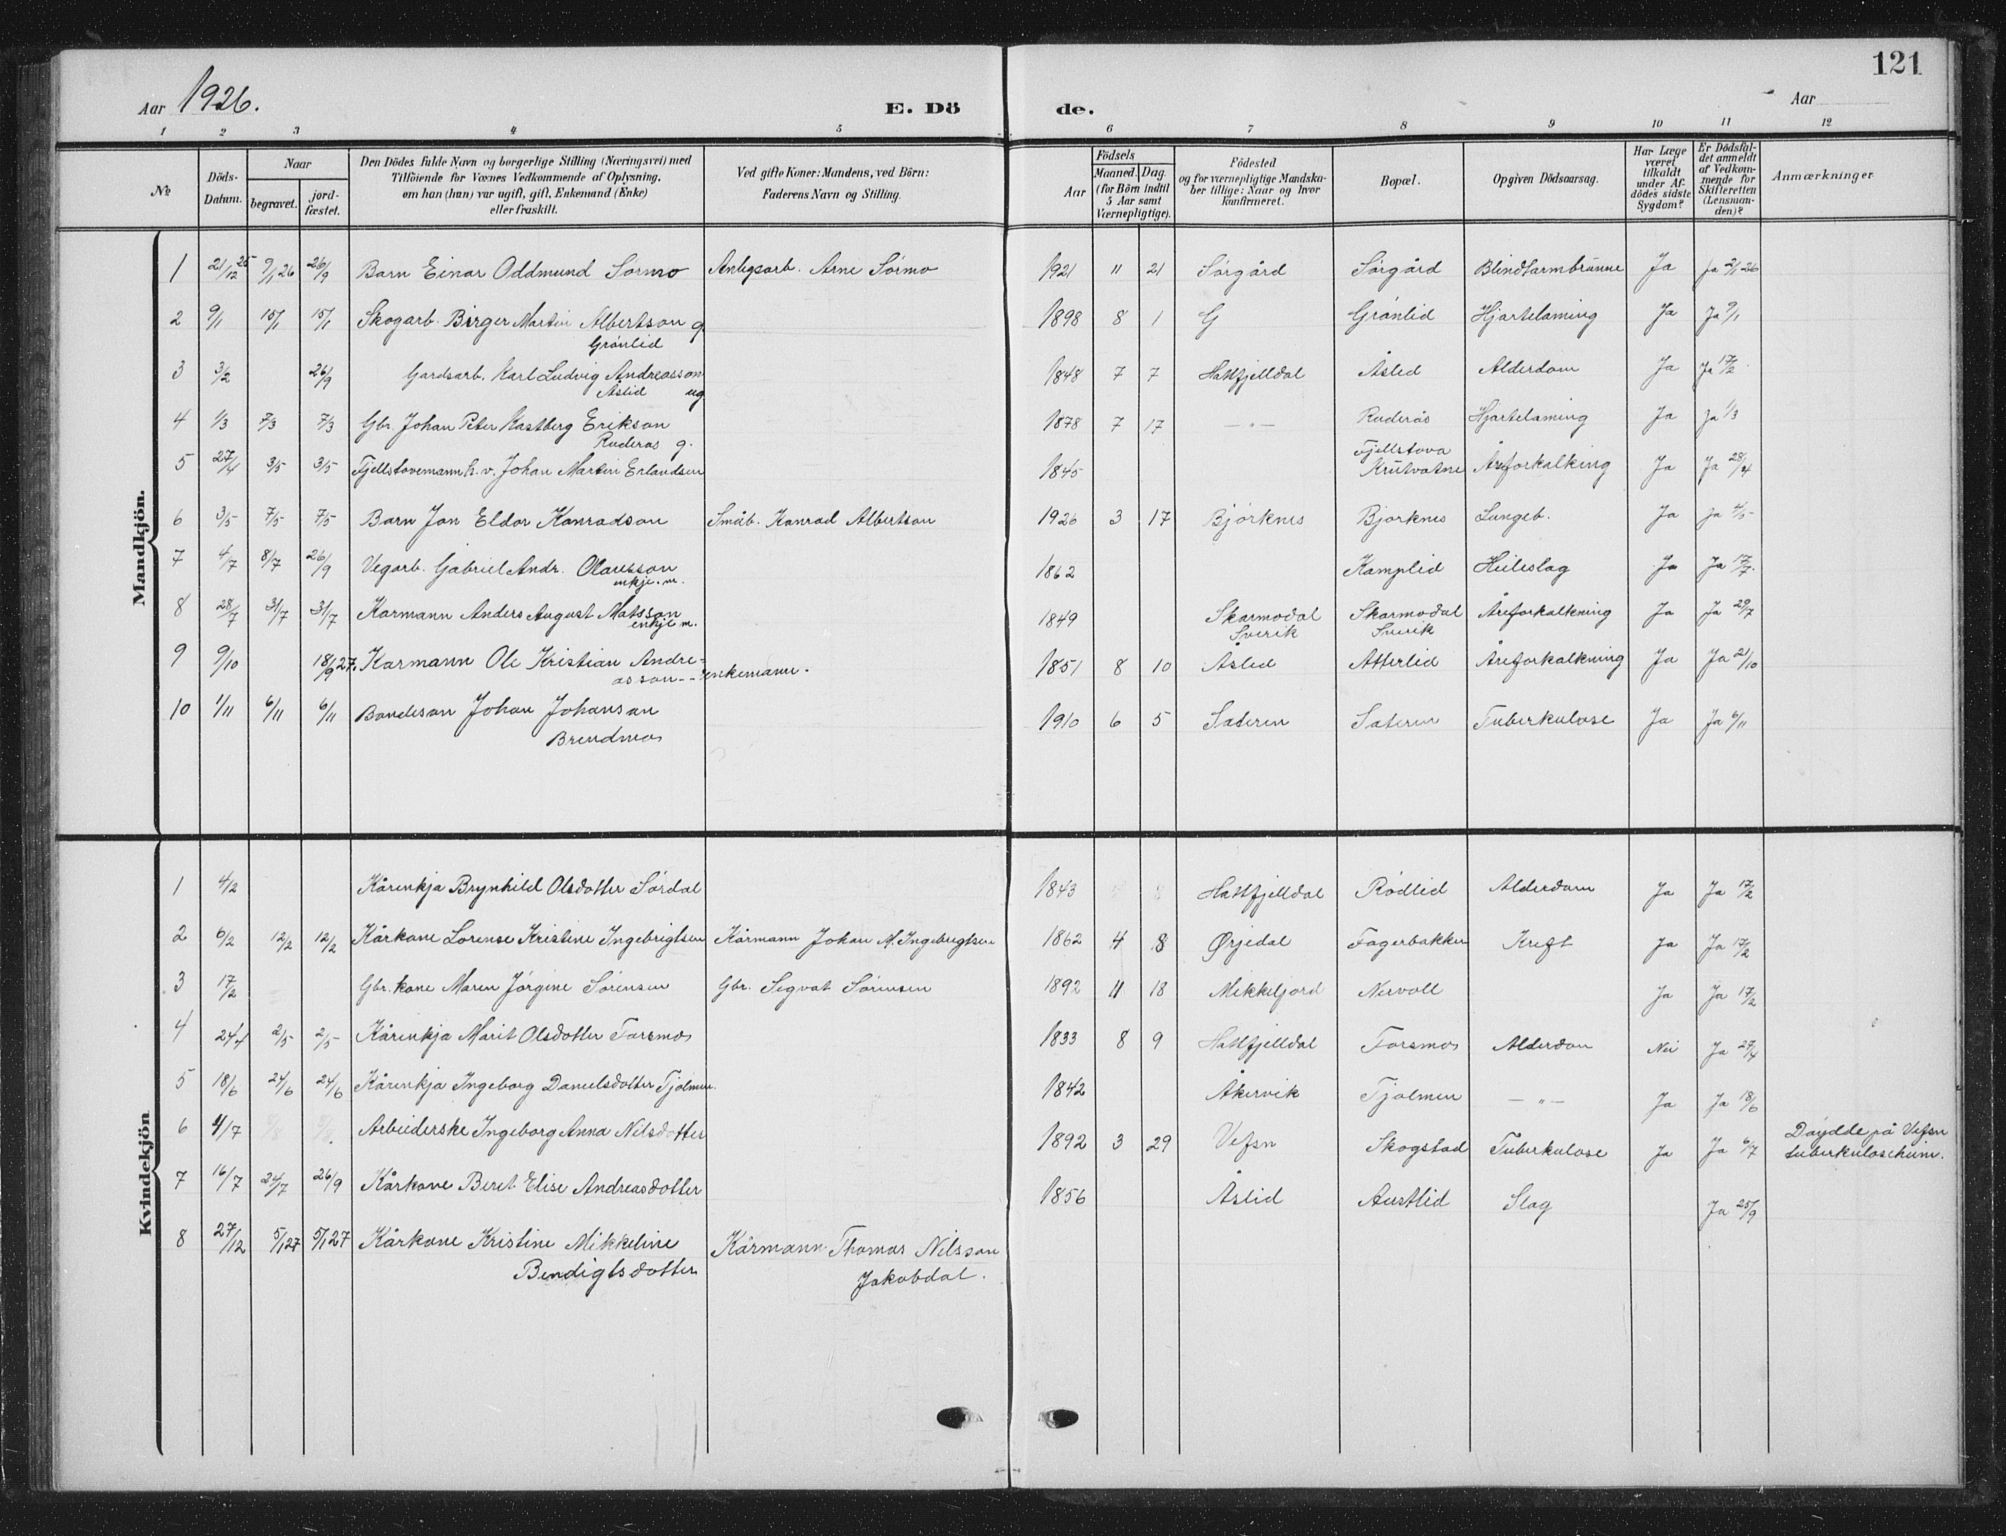 121
Aar 1926.
E. Dö
de.
Aar
1 2 3 4 5 6 7 8 9 10 11 12
No
Döds-Datum.
Naar
begravet.
jord-fæstet.
Den Dödes fulde Navn og borgerlige Stilling (Næringsvei) med
Tilföiende for Vornes Vedkommende af Oplysning,
om han (hun) var ugift, gift, Enkemand (Enke)
eller fraskilt.
Ved gifte Koner: Mandens, ved Börn:
Faderens Navn og Stilling.
Födsels
Aar
Maaned. Dag.
(for Börn indtil
5 Aar samt
Værnepligtige).
Födested
og for værnepligtige Mandska-
ber tillige: Naar og hvor
konfirmeret.
Bopæl.
Opgiven Dödsaarsag.
Har Læge
været
tilkaldt
under Af-
dödes sidste
Sygdom?
Er Dödsfal-
det anmeldt
af Vedkom-
mende for
Skifteretten
(Lensman-
den)?
Anmærkninger
Mandkjön.
1 21/12 25 9/1 26 26/9 Barn Einar Oddmund Sørmo Anlegsarb. Arne Sörmo 1921 11 21 Sørgård Sørgård Blindtarmbrånne Ja Ja 2/1 26
2 9/1 15/1 15/1 Skogarb. Birger Martin Albertson g. 1898 8 1 G Grønlid Hjartelaming Ja Ja 9/1
Grønlid
3 3/2 26/9 Gardsarb. Karl Ludvig Andreasson 1848 7 7 Hattfjelldal Åslid Alderdom Ja Ja 17/2
Åslid ug
4 1/3 7/3 7/3 Gbr. Johan Peter Kastberg Erikson 1878 7 17 — " — Ruderås Hjartelaming Ja Ja 1/3
Ruderås g.
5 27/4 3/5 3/5 Fjellstovemann h.v. Johan Martin Erlandsen 1845 Fjellstova
Krutvatne Åreforkalking Ja Ja 28/4
6 3/5 7/5 7/5 Barn Jon Eldor Konradson Småb. Konrad Albertson 1926 3 17 Bjørknes Bjørknes Lungeb. Ja Ja 4/5
7 4/7 8/7 26/9 Vegarb. Gabriel Andr. Olausson 1862 Kamplid Heileslag Ja Ja 17/7.
enkje.m.
8 28/7 31/7 31/7 Kårmann Anders August Matsson 1849 Skarmodal Skarmodal Åreforkalkning Ja Ja 29/7
enkje m. Sverik Sverik
9 9/10 18/9 27. Karmann Ole Kristian Andre- 1851 8 10 Åslid Atterlid Åreforkalkning Ja Ja 21/10
asson - - enkemann.
10 1/11 6/11 6/11 Bondeson Johan Johanson 1910 6 5 Sæteren Sæteren Tuberkulose Ja Ja 6/11
Brendmo
Kvindekjön
1 4/2 Kårenkja Brynhild Olsdotter Sørdal 1843 Hattfjelldal Rødlid Alderdom Ja Ja 17/2
2 6/2 12/2 12/2 Kårkone Lorense Kristine Ingebrigtsen Kårmann Johan A. Ingebrigtsen 1862 4 8 Ørjedal Fagerbakken Kreft Ja Ja 17/2
3 17/2 Gbr.kone Maren Jørgine Sørensen Gbr. Sigvat Sørensen 1892 11 18 Mikkeljord Nervoll Ja Ja 17/2
4 24/4 2/5 2/5 Kårenkja Marit Olsdotter Forsmo 1833 8 9 Hattfjelldal Forsmo Alderdom Nei Ja 29/4
5 18/6 24/6 24/6 Kårenkja Ingeborg Danielsdotter Tjolmen. 1842 Åkervik Tjolmen — " — Ja Ja 18/6
6 4/7 Arbeiderske Ingeborg Anna Nilsdotter 1892 3 29 Vefsn Skogstad Tuberkulose Ja Ja 6/7 Døydde på Vefsn
tuberkuloseheim.
7 16/7 24/7 26/9 Kårkone Beret Elise Andreasdotter 1856 Åslid Austlid Slag Ja 25/9
8 27/12 5/1 27 5/1 27 Kårkone Kristine Mikkeline Kårmann Thomas Nilsson
Bendigtsdotter Jakobdal.